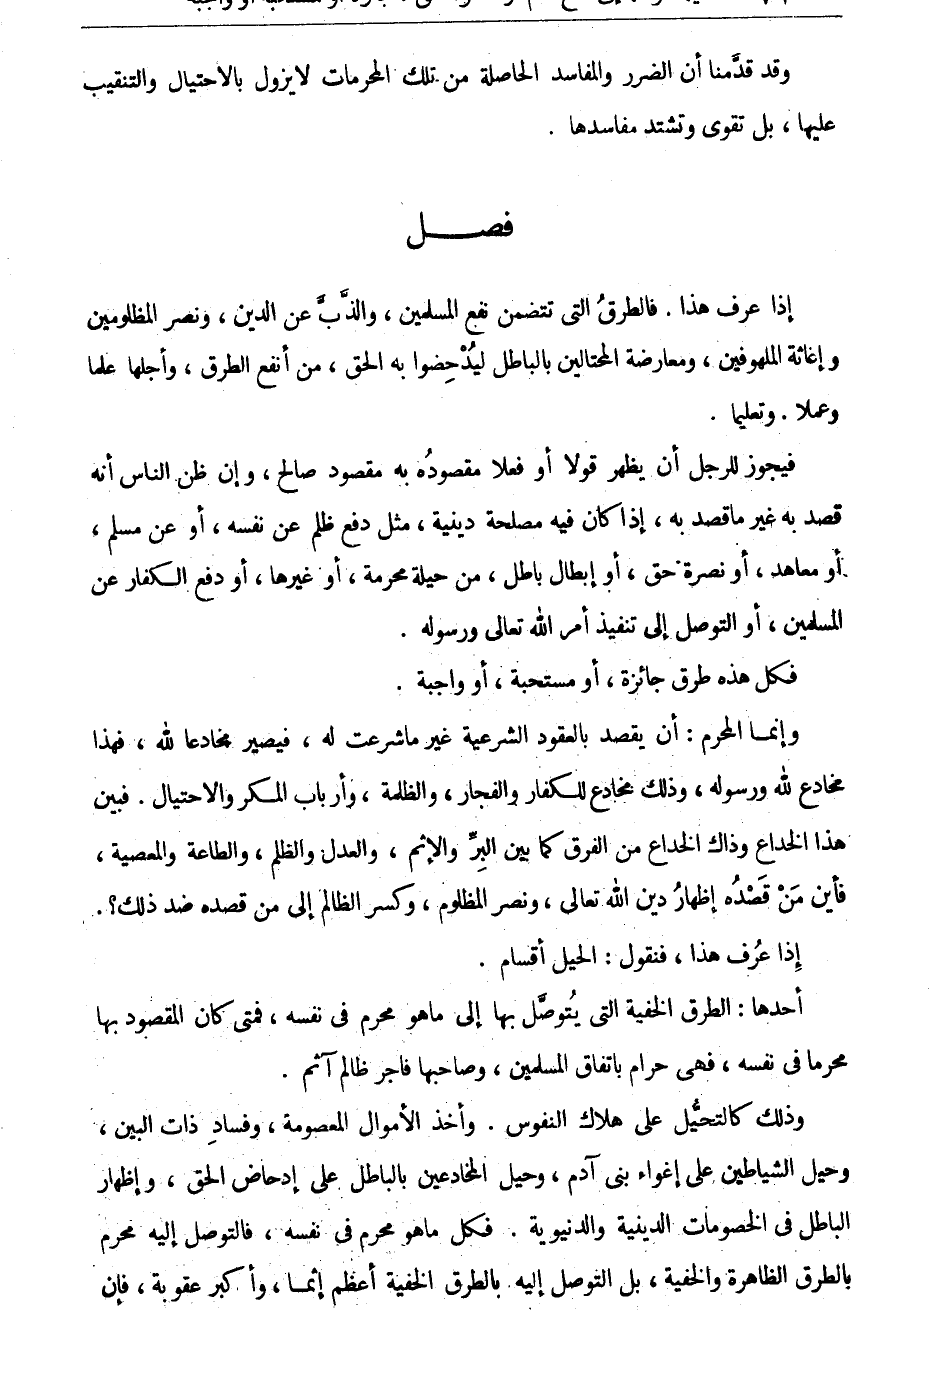 وقد قدَّمنا أن الضرر والمفاسد الحاصلة من تلك المحرمات لايزول بالاحتيال والتنقيب
عليها ، بل تقوى وتشتد مفاسدها .
فصـــــل
إذا عرف هذا . فالطرقُ التى تتضمن نفع المسلمين ، والذَّبَّ عن الدين ، ونصر المظلومين
وإغاثة الملهوفين ، ومعارضة المحتالين بالباطل ليُدْحِضوا به الحق ، من أنفع الطرق ، وأجلها علما
وعملا . وتعليما .
فيجوز للرجل أن يظهر قولا أو فعلا مقصودُه به مقصود صالح ، وإن ظن الناس أنه
قصد به غير ماقصد به ، إذا كان فيه مصلحة دينية ، مثل دفع ظلم عن نفسه ، أو عن مسلم ،
أو معاهد ، أو نصرة حق ، أو إبطال باطل ، من حيلة محرمة ، أو غيرها ، أو دفع الكفار عن
المسلمين ، أو التوصل إلى تنفيذ أمر الله تعالى ورسوله .
فكل هذه طرق جائزة ، أو مستحبة ، أو واجبة .
وإنما المحرم : أن يقصد بالعقود الشرعية غير ماشرعت له ، فيصير مخادعا لله ، فهذا
مخادع لله ورسوله ، وذلك مخادع للكفار والفجار ، والظلمة ، وأرباب المكر والاحتيال . فبين
هذا الخداع وذاك الخداع من الفرق كما بين البِرِّ والإثم ، والعدل والظلم ، والطاعة والمعصية ،
فأين مَنْ قَصْدُه إظهارُ دين الله تعالى ، ونصر المظلوم ، وكسر الظالم إلى من قصده ضد ذلك ؟ .
إِذا عرُف هذا ، فنقول : الحيل أقسام .
أحدها : الطرق الخفية التى يُتوصَّل بها إلى ماهو محرم فى نفسه ، فمتى كان المقصود بها
محرما فى نفسه ، فهى حرام باتفاق المسلمين ، وصاحبها فاجر ظالم آثم .
وذلك كالتحيُّل على هلاك النفوس . وأخذ الأموال المعصومة ، وفسادِ ذات البين ،
وحيل الشياطين على إغواء بنى آدم ، وحيل المخادعين بالباطل على إدحاض الحق ، وإظهار
الباطل فى الخصومات الدينية والدنيوية . فكل ماهو محرم فى نفسه ، فالتوصل إليه محرم
بالطرق الظاهرة والخفية ، بل التوصل إليه بالطرق الخفية أعظم إثما ، وأكبر عقوبة ، فإن